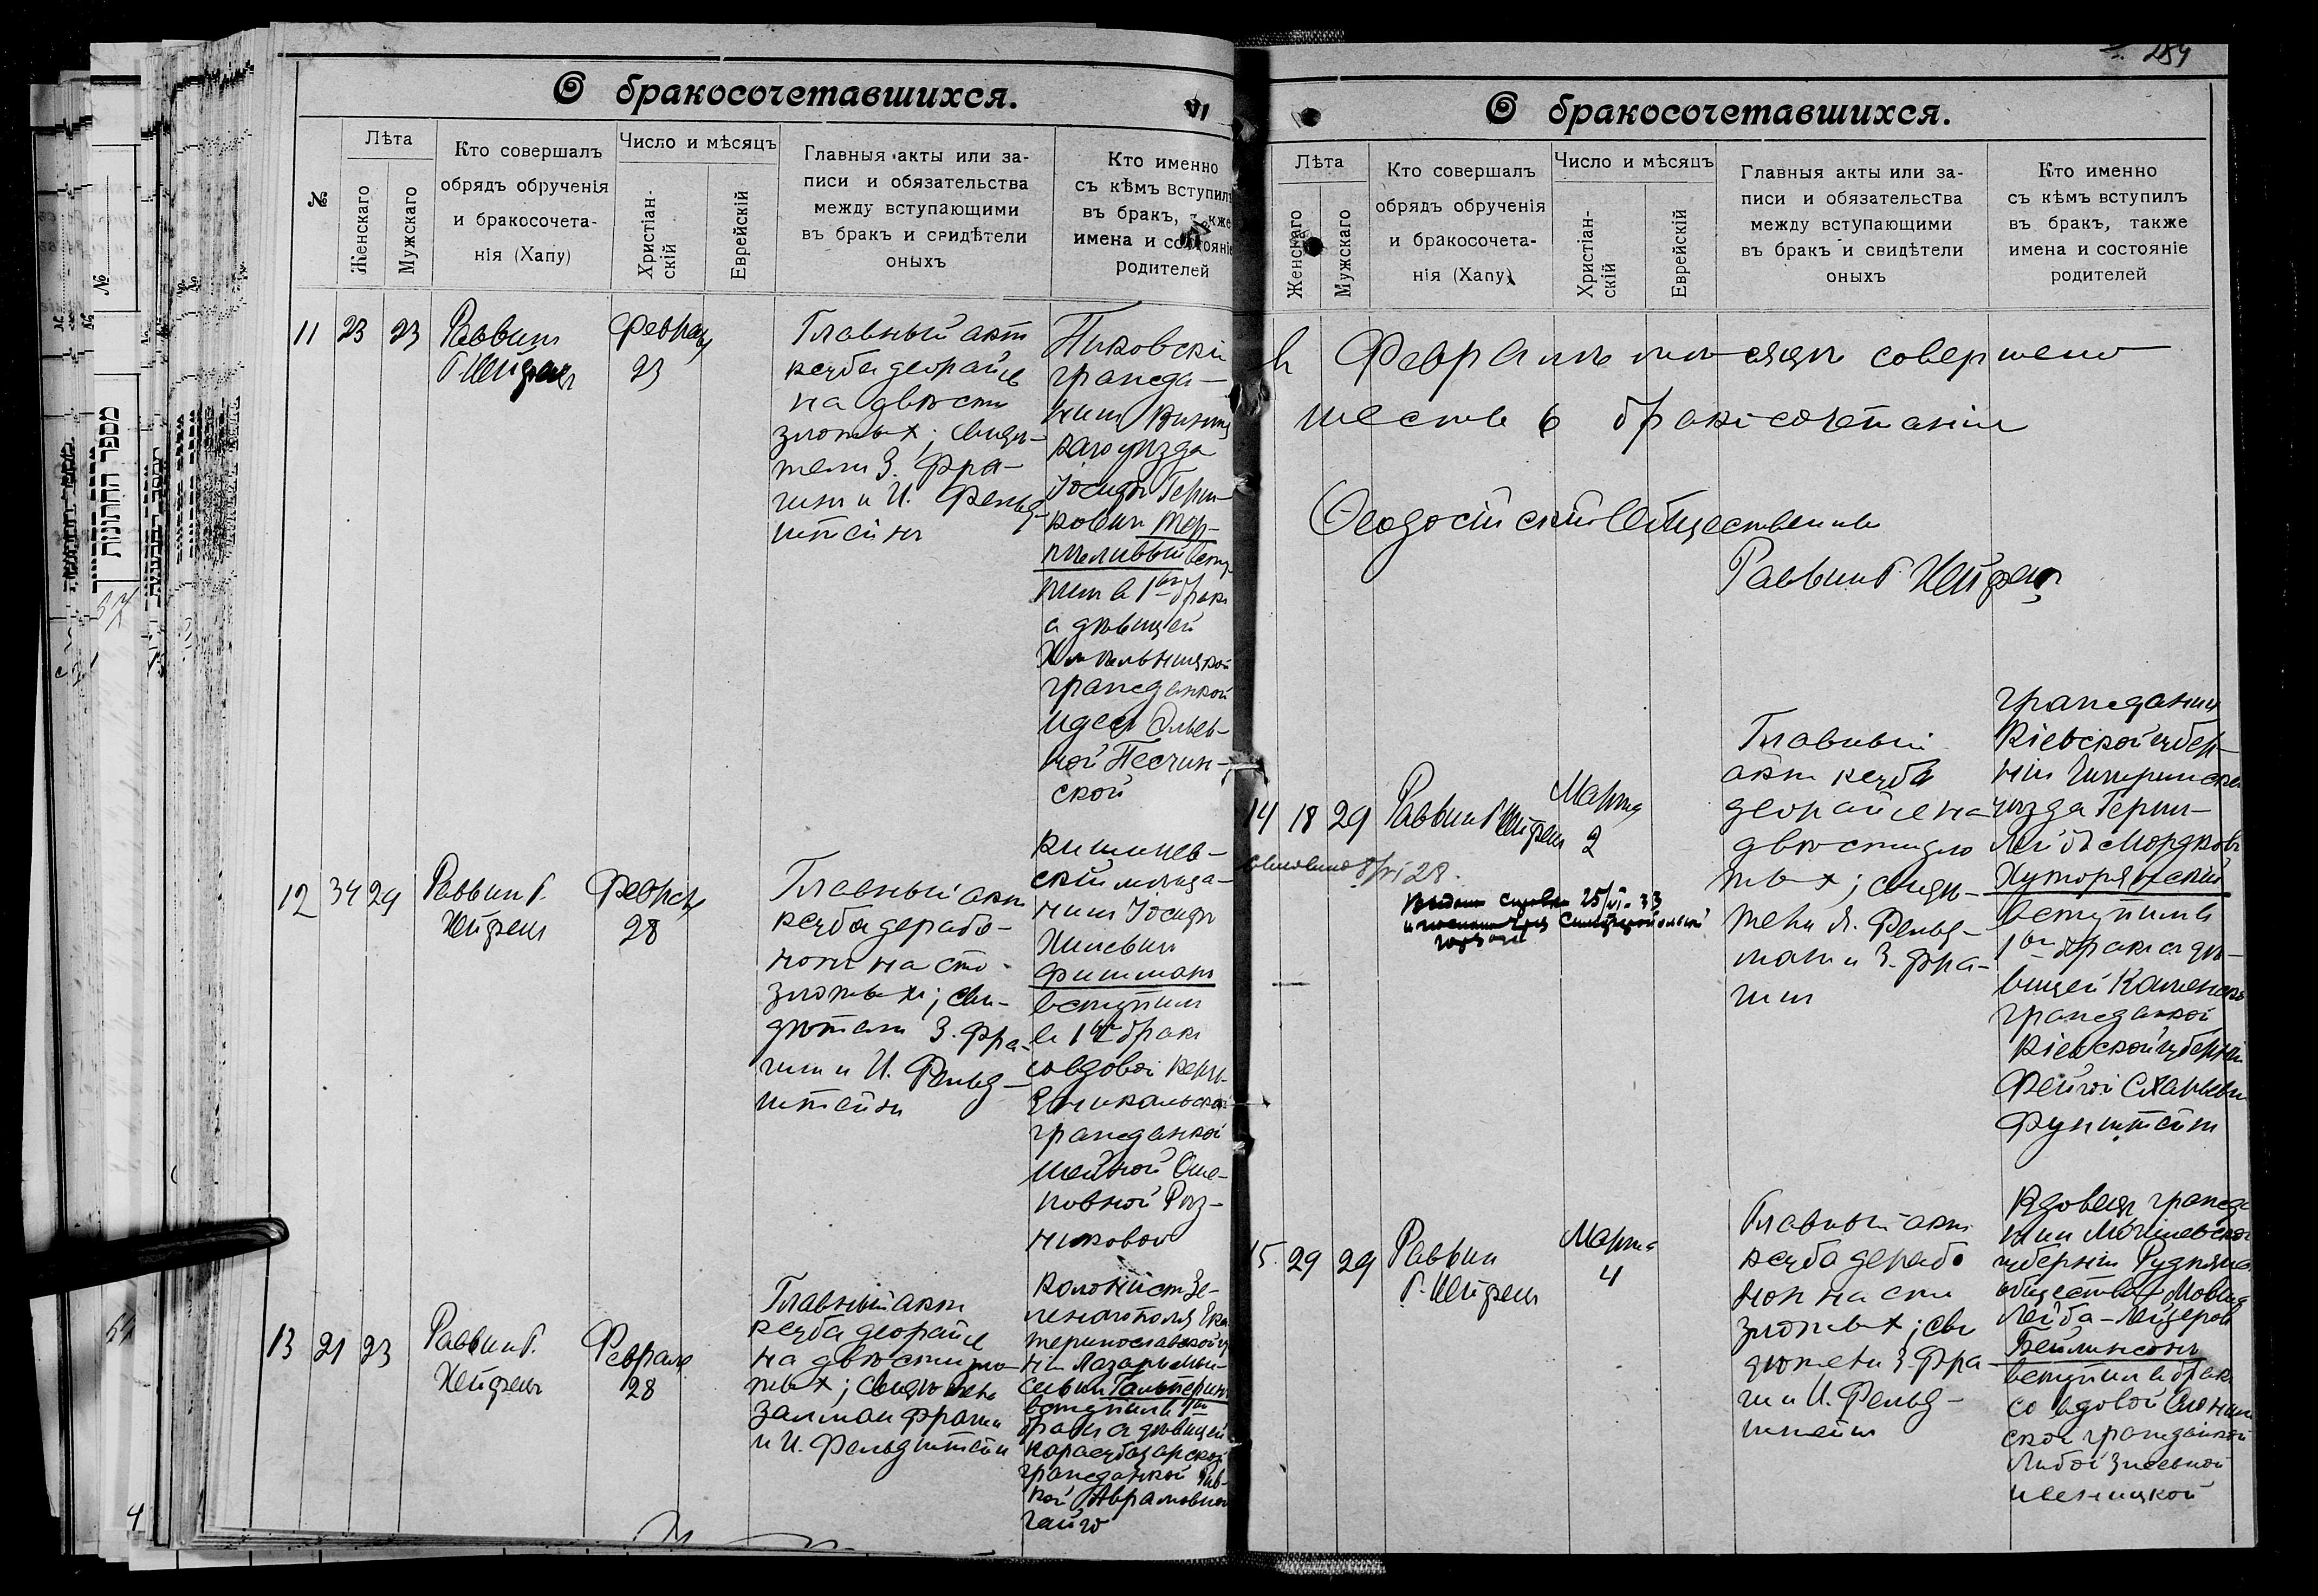 О бракосочетавшихся.
VI
№
Лѣта
Женскаго
Мужскаго
Кто совершалъ
обрядъ обрученія
и бракосочета-
нія (Хапу)
Число и мѣсяцъ
Христіан-
скій
Еврейскій
Главныя акты или за-
писи и обязательства
между вступающими
въ бракъ и свидѣтели
оныхъ
Кто именно
съ кѣмъ вступилъ
въ бракъ,
имена и состояніе
родителей
11 23 23
Раввин
Г. Хейфец
Февраля
23
Главный акт
кесуба деорайсе
на двѣсти
злотых; свидѣ-
тели З. Фра-
гин и И. Фельд-
штейн
Пиковскій
гражда-
нин Винниц
каго уѣзда
Іосиф Герш-
кович Тер-
пиливый всту-
пил в 1ый брак
с дѣвицей
Хмѣльницкой
гражданкой
Идес
ной Песчин-
ской
12 34 29
Раввин Г.
Хейфец
Февраля
28
Главный акт
кесуба дерабо-
нон на сто
злотых; сви-
дѣтели З. Фра-
гин и И. Фельд-
штейн
Кишинев-
скій мѣща-
нин Іосиф
Хилевич
Фишман
вступил
в 1ый брак
со вдовой Керчь-
Еникальской
гражданкой
Шейной
повной Рѣз-
никовой
13 21 23
Раввин Г.
Хейфец
Февраля
28
Главный акт
кесуба деорайсе
на двѣсти зло-
тых; свидѣтели
Залман Фрагин
и И. Фельдштейн
Колонист Зе-
ленополя Ека
теринославской гу
нии Лазарь Мои-
сеевич Гальперин
вступил в 1ый
брак с дѣвицей
Карасубазарской
гражданкой Рив-
кой Абрамовной
О бракосочетавшихся.
284
Лѣта
Женскаго
Мужскаго
Кто совершалъ
обрядъ обрученія
и бракосочета-
нія (Хапу)
Число и мѣсяцъ
Христіан-
скій
Еврейскій
Главныя акты или за-
писи и обязательства
между вступающими
въ бракъ и свидѣтели
оныхъ
Кто именно
съ кѣмъ вступилъ
въ бракъ, также
имена и состояніе
родителей
В Февралѣ мѣсяцѣ совершено
шесть 6 бракосочетаній
Ѳеодосійскій Общественный
Раввин Г. Хейфец
14 18 29
Раввин Г. Хейфец
Марта
2
8/VI 28.
Выдан справка 25/VI-33
Главный
акт кесуба
деорайсе на
двѣсти зло
тых; свидѣ-
тели Я. Фельд-
ман и З. Фра-
гин
гражданин
Кіевской губер-
ніи Чигиринскаго
уѣзда Герш-
Лейб Мордков
Хуторянскій
вступил в
1ый брак с дѣ-
вицей Каменской
гражданкой
Кіевской губерніи
Фейгой
15. 29 29
Раввин
Г. Хейфец
Марта
4
Главный акт
кесуба дерабо
нон на сто
злотых; сви
дѣтели З. Фра-
гин И. Фельд-
штейн
Вдовец гражда
нин Могилевской
губерніи Руднянска
общества Мовша
Лейба-Лейзеров
Бейлинсон
вступил в брак
со вдовой Слоним
ской гражданкой
Либой
מספר החתונות